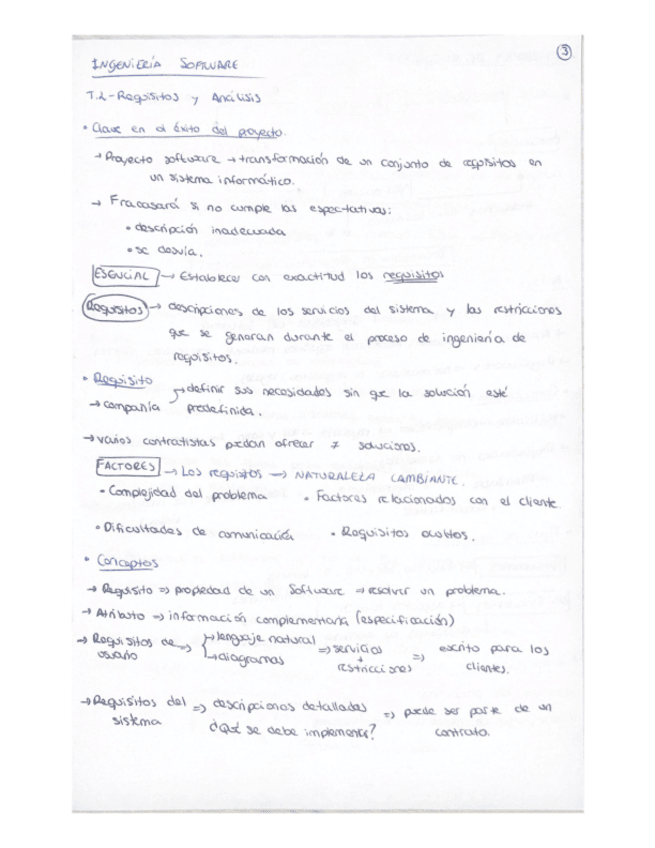 3
INGENIERÍA SOFTWARE
T.2-Requisitos y Análisis
• Clave en el éxito del proyecto.
→ Proyecto software → transformación de un conjunto de requisitos en
un sistema informático.
→ Fracasará si no cumple las espectativas:
• descripción inadecuada
• se desvía.
ESENCIAL → Establecer con exactitud los requisitos
Requisitos → descripciones de los servicios del sistema y las restricciones
que se generan durante el proceso de ingeniería de
requisitos.
• Requisito
→ definir sus necesidades sin qe la solución esté
→ compañía predefinida.
→ varios contratistas puedan ofrecer ≠ soluciones.
FACTORES → Los requisitos → NATURALEZA CAMBIANTE.
• Complejidad del problema • Factores relacionados con el cliente.
• Dificultades de comunicación • Requisitos ocultos.
• Conceptos
→ Requisito => propiedad de un Software => resolver un problema.
→ Atributo => información complementaria (especificación)
→ Requisitos de => → lenguaje natural => servicios => escrito para los
usuario → diagramas + restricciones clientes.
→ Requisitos del => descripciones detalladas => puede ser parte de un
sistema ¿Qué se debe implementar? contrato.